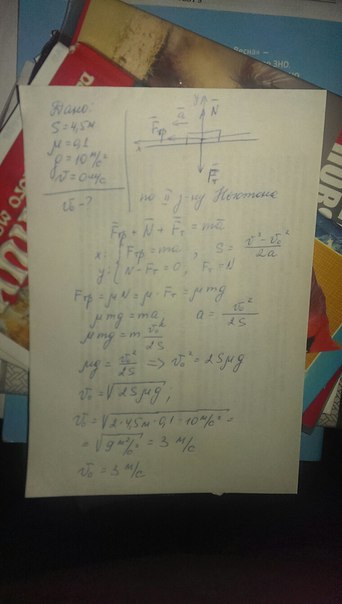 Дано:
S = 4,5м
μ = 0,1
g = 10 м/с²
v = 0 м/с
v₀ - ?
y
N
a
Fтр
x
Fт
по II з-ну Ньютона
Fтр + N + Fт = ma
x: { Fтр = ma , S = (v² - v₀²)/2a
y: { N - Fт = 0, Fт = N
Fтр = μN = μ · Fт = μmg
μmg = ma, a = v₀²/2S
μmg = m v₀²/2S
μg = v₀²/2S => v₀² = 2Sμg
v₀ = √2Sμg ;
v₀ = √2 · 4,5м · 0,1 · 10 м/с² =
= √9 м²/с² = 3 м/с
v₀ = 3 м/с
ЗНО,